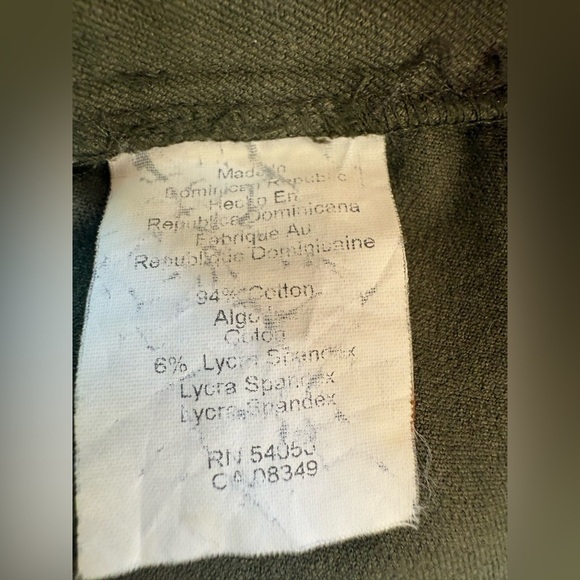 Made In
Dominican Republic
Hecho En
Republica Dominicana
Fabrique Au
Republique Dominicaine
94% Cotton
6% Lycra Spandex
Lycra Spandex
Lycra Spandex
RN
CA 08349